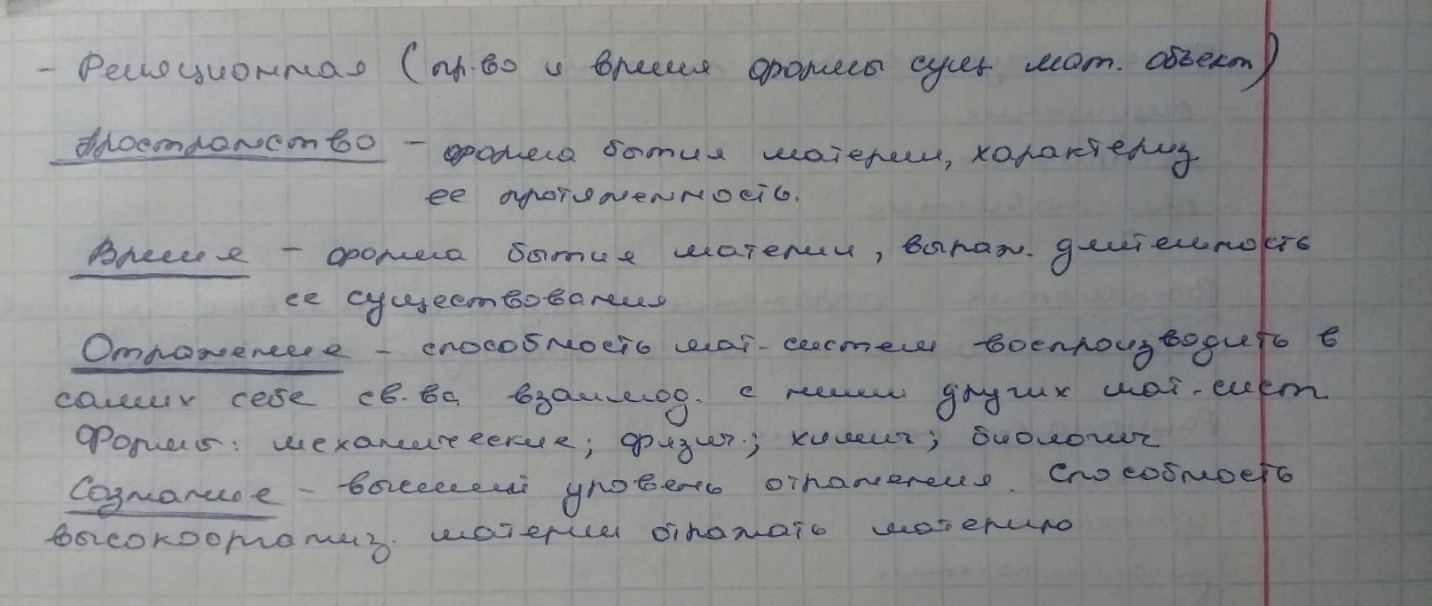 - Реляционная (пр.во и время формы сущ. мат. объект)
Пространство - форма бытия материи, характериз
ее протяженность.
Время - форма бытия материи, выраж. длительность
ее существования
Отражение - способность мат-систем воспроизводить в
самих себе св.ва взаимод. с ними других мат-сист
Формы: механические; физич.; химич; биологич
Сознание - высший уровень отражения. Способность
высокоорганиз. материи отражать материю